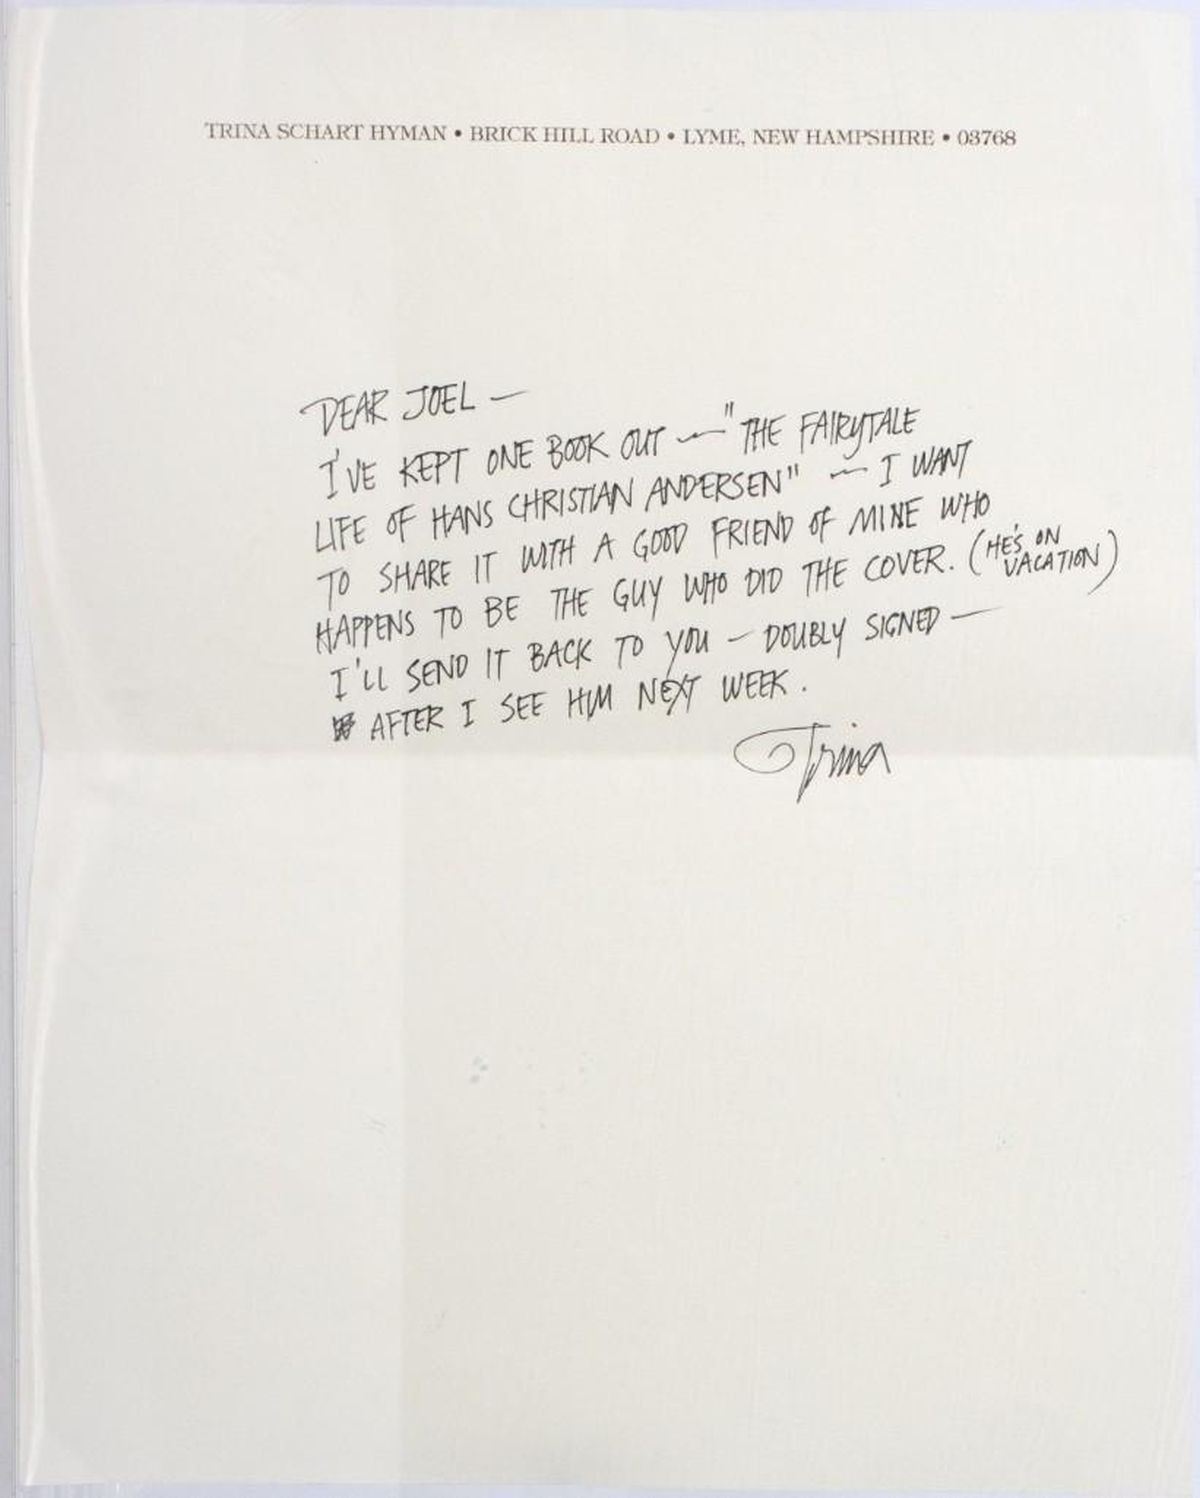 TRINA SCHART HYMAN • BRICK HILL ROAD • LYME, NEW HAMPSHIRE • 03768
DEAR JOEL —
I'VE KEPT ONE BOOK OUT — "THE FAIRYTALE
LIFE OF HANS CHRISTIAN ANDERSEN" — I WANT
TO SHARE IT WITH A GOOD FRIEND OF MINE WHO
HAPPENS TO BE THE GUY WHO DID THE COVER. (HE'S ON
VACATION)
I'LL SEND IT BACK TO YOU — DOUBLY SIGNED —
AFTER I SEE HIM NEXT WEEK.
Trina